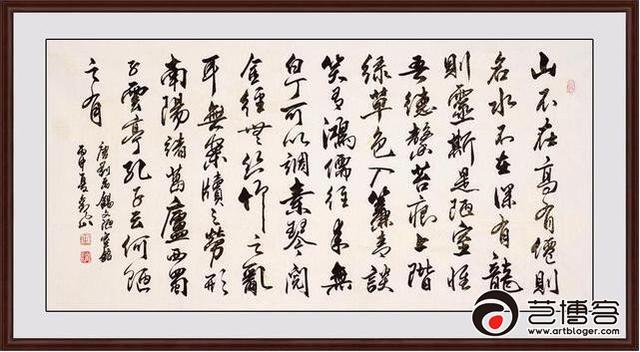 山不在高有僊則
名水不在深有龍
則靈斯是陋室惟
吾德馨苔痕上階
緑草色入簾青談
笑有鴻儒往來無
白丁可以調素琴閲
金經無絲竹之亂
耳無案牘之勞形
南陽諸葛廬西蜀
子雲亭孔子云何陋
之有
唐劉禹錫文陋室銘
丙申夏
艺博客
www.artbloger.com